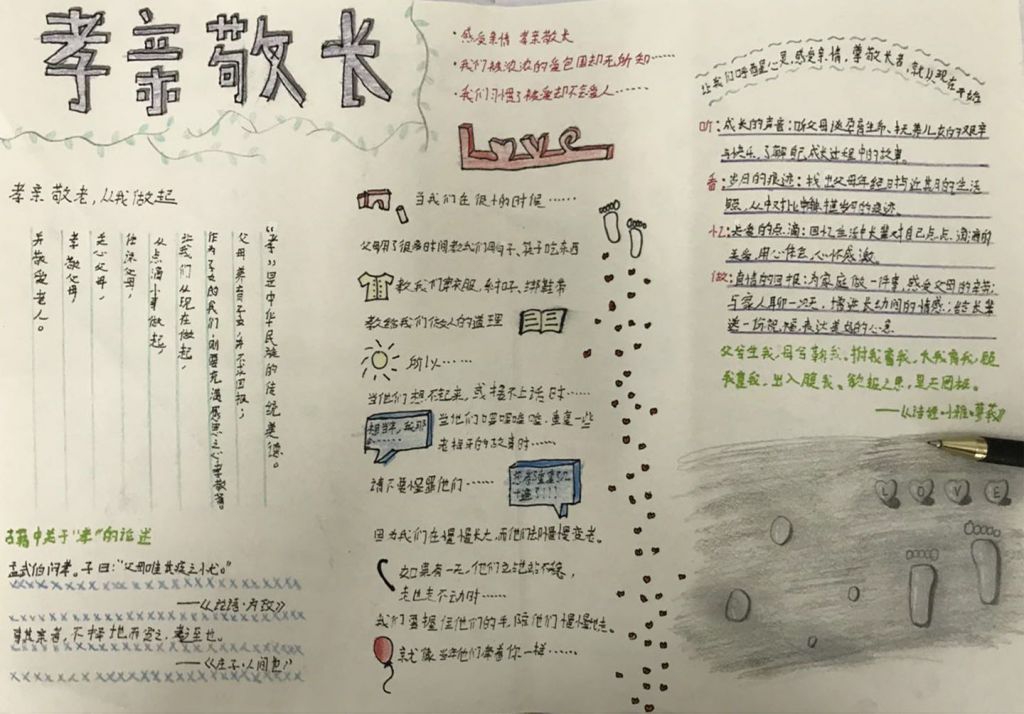 孝亲敬长
·感受亲情 孝亲敬长
·我们被浓浓的爱包围却无所知……
·我们习惯了被爱却不会爱人……
Love
孝亲敬老,从我做起
“孝”是中华民族的传统美德。
父母养育子女,并不求回报;
作为子女的我们,则要充满感恩之心孝敬爹
让我们从现在做起,
从点滴小事做起,
体谅父母,
关心父母,
孝敬父母,
并敬爱老人。
古籍中关于“孝”的论述
孟武伯问孝。子曰:“父母唯其疾之忧。”
——《论语·为政》
事其亲者,不择地而安之,孝之至也。
——《庄子·人间世》
当我们在很小的时候……
父母用了很多时间教我们用勺子、筷子吃东西
教我们穿衣服,绑鞋带
教给我们做人的道理
所以……
当他们想不起来,或接不上话时……
想当年,我那
……
当他们啰啰嗦嗦,重复一些
老掉牙的故事时……
请不要怪罪他们……
因为我们在慢慢长大,而他们却慢慢变老。
如果有一天,他们站也站不稳,
走也走不动时……
我们要握住他们的手,陪他们慢慢地走。
就像当年他们牵着你一样……
让我们呼唤醒心灵,感受亲情,尊敬长者,就从现在开始
听:成长的声音:听父母谈孕育生命、抚养儿女的艰辛
与快乐,了解自己成长过程中的故事。
看:岁月的痕迹:找出父母年轻时与近其月的生活
照,从中对比中懂岁月的痕迹。
忆:关爱的点滴:回忆生活中长辈对自己点点滴滴的
关爱,用心体会,心怀感激。
做:真情的回报:为家庭做一件事,感受父母的辛苦;
与家人聊一次天,增进长幼间的情感;给长辈
送一份祝福,表达美好的心意
父兮生我,母兮鞠我。拊我畜我,长我育我,顾
我复我,出入腹我。欲报之恩,昊天罔极。
——《诗经·小雅·蓼莪》
LOVE